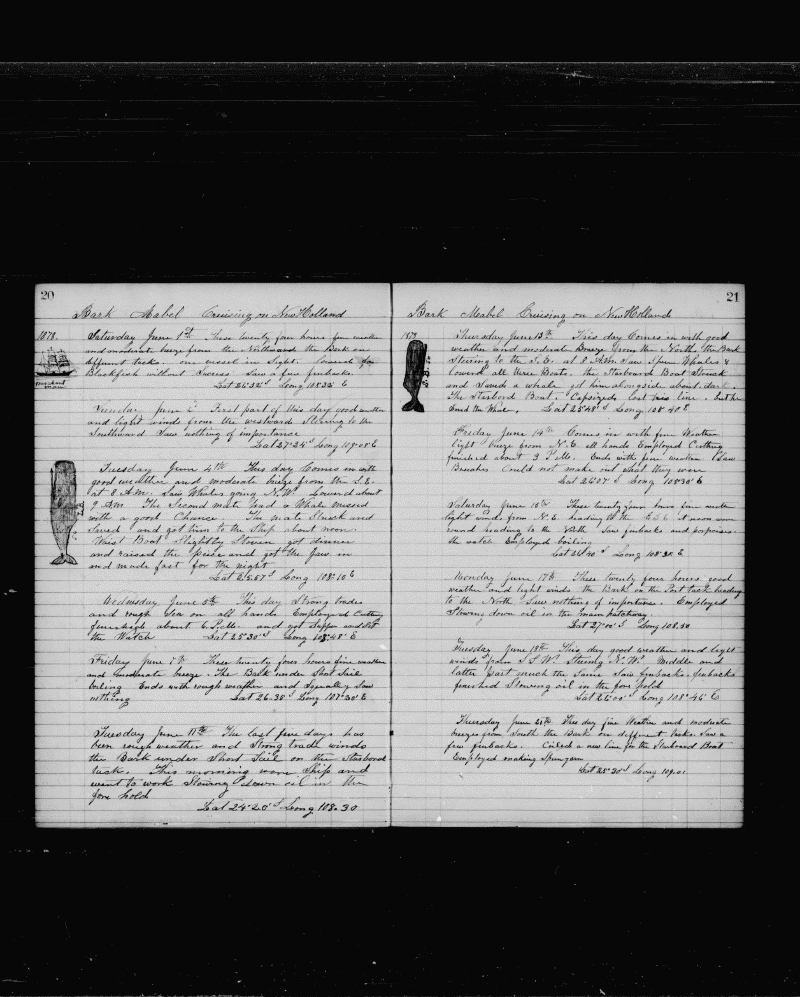 20
Bark Mabel Cruising on New Holland
1878
Saturday June 1st These twenty four hours fine weather
and moderate breeze from the Northward the Bark on
different tacks. one vessel in Sight. Lowered for
Blackfish without Success Saw a few finbacks.
Lat 26°32' S Long 108°32' E
merchant man
First part of this day good weather
and light winds from the westward Steering to the
Southward Saw nothing of importance
Lat 27°24' S Long 109°08 E
Tuesday June 4th This day Comes in with
good weather and moderate breeze from the S.E.
at 8 A.M. Saw Whales going N.W. Lowered about
9 A.M. The Second mate had a Whale missed
with a good Chance. The mate Struck and
Saved and got him to the Ship about noon
Waist Boat Slightly Stoven got dinner
and raised the piece and got the Jaw in
and made fast for the night
Lat 25°57' S Long 108°10 E
Wednesday June 5th This day Strong trades
and rough Sea on all hands Employed Cutting
finished about 6 P.M. and got Supper and Set
the Watch Lat 25°30' S Long 108°48' E
Friday June These twenty four hours fine weather
and moderate breeze. The Bark under Short Sail
boiling Ends with rough weather and Squally Saw
nothing Lat 26.38' S Long 107°30' E
Tuesday June 11th The last few days has
been rough weather and Strong trade winds
the Bark under Short Sail on the Starbord
tack. This morning wore Ship and
went to work Stowing down oil in the
fore hold
Lat 24°20' S Long 108.30
21
Bark Mabel Cruising on New Holland
1878
Thursday June 13th This day Comes in with good
weather and moderate Breeze from the North. the Bark
Steering to the S.E. at 8 A.M. Saw Sperm Whales &
lowered all three Boats. the Starboard Boat Struck
and Saved a whale got him alongside about dark.
The Starbord Boat. Capsized lost line.
Lat 25°48' S Long 108°40' E
Friday June 14th Comes in with fine Weather
light breeze from N.E all hands Employed Cutting
finished about 3 P.M. Ends with fine weather Saw
Breaches Could not make out what they were
Lat 26°07' S Long 108°30' E
Saturday June 15th These twenty four hours fine weather
light winds from N.E. heading to the E.S.E. at noon wore
round heading to the North Saw finbacks and porpoises.
the watch Employed boiling
Monday June 17th These twenty four hours good
weather and light winds the Bark on the Port tack heading
to the North Saw nothing of importance. Employed
Stowing down oil in the main hatchway.
Lat 27°00' S Long 108.50
Tuesday June 18th This day good weather and light
winds from S.S.W. Steering N.W. Middle and
latter part much the Same Saw finbacks. finbacks
finished Stowing oil in the fore hold
Lat 26°00' S Long 108°46' E
Thursday June 20th This day fine Weather and moderate
breezes from South the Bark on different tacks. Saw a
few finbacks. Coiled a new line for the Starboard Boat
Employed making Spunyarn
Lat 25°30' S Long 109.01